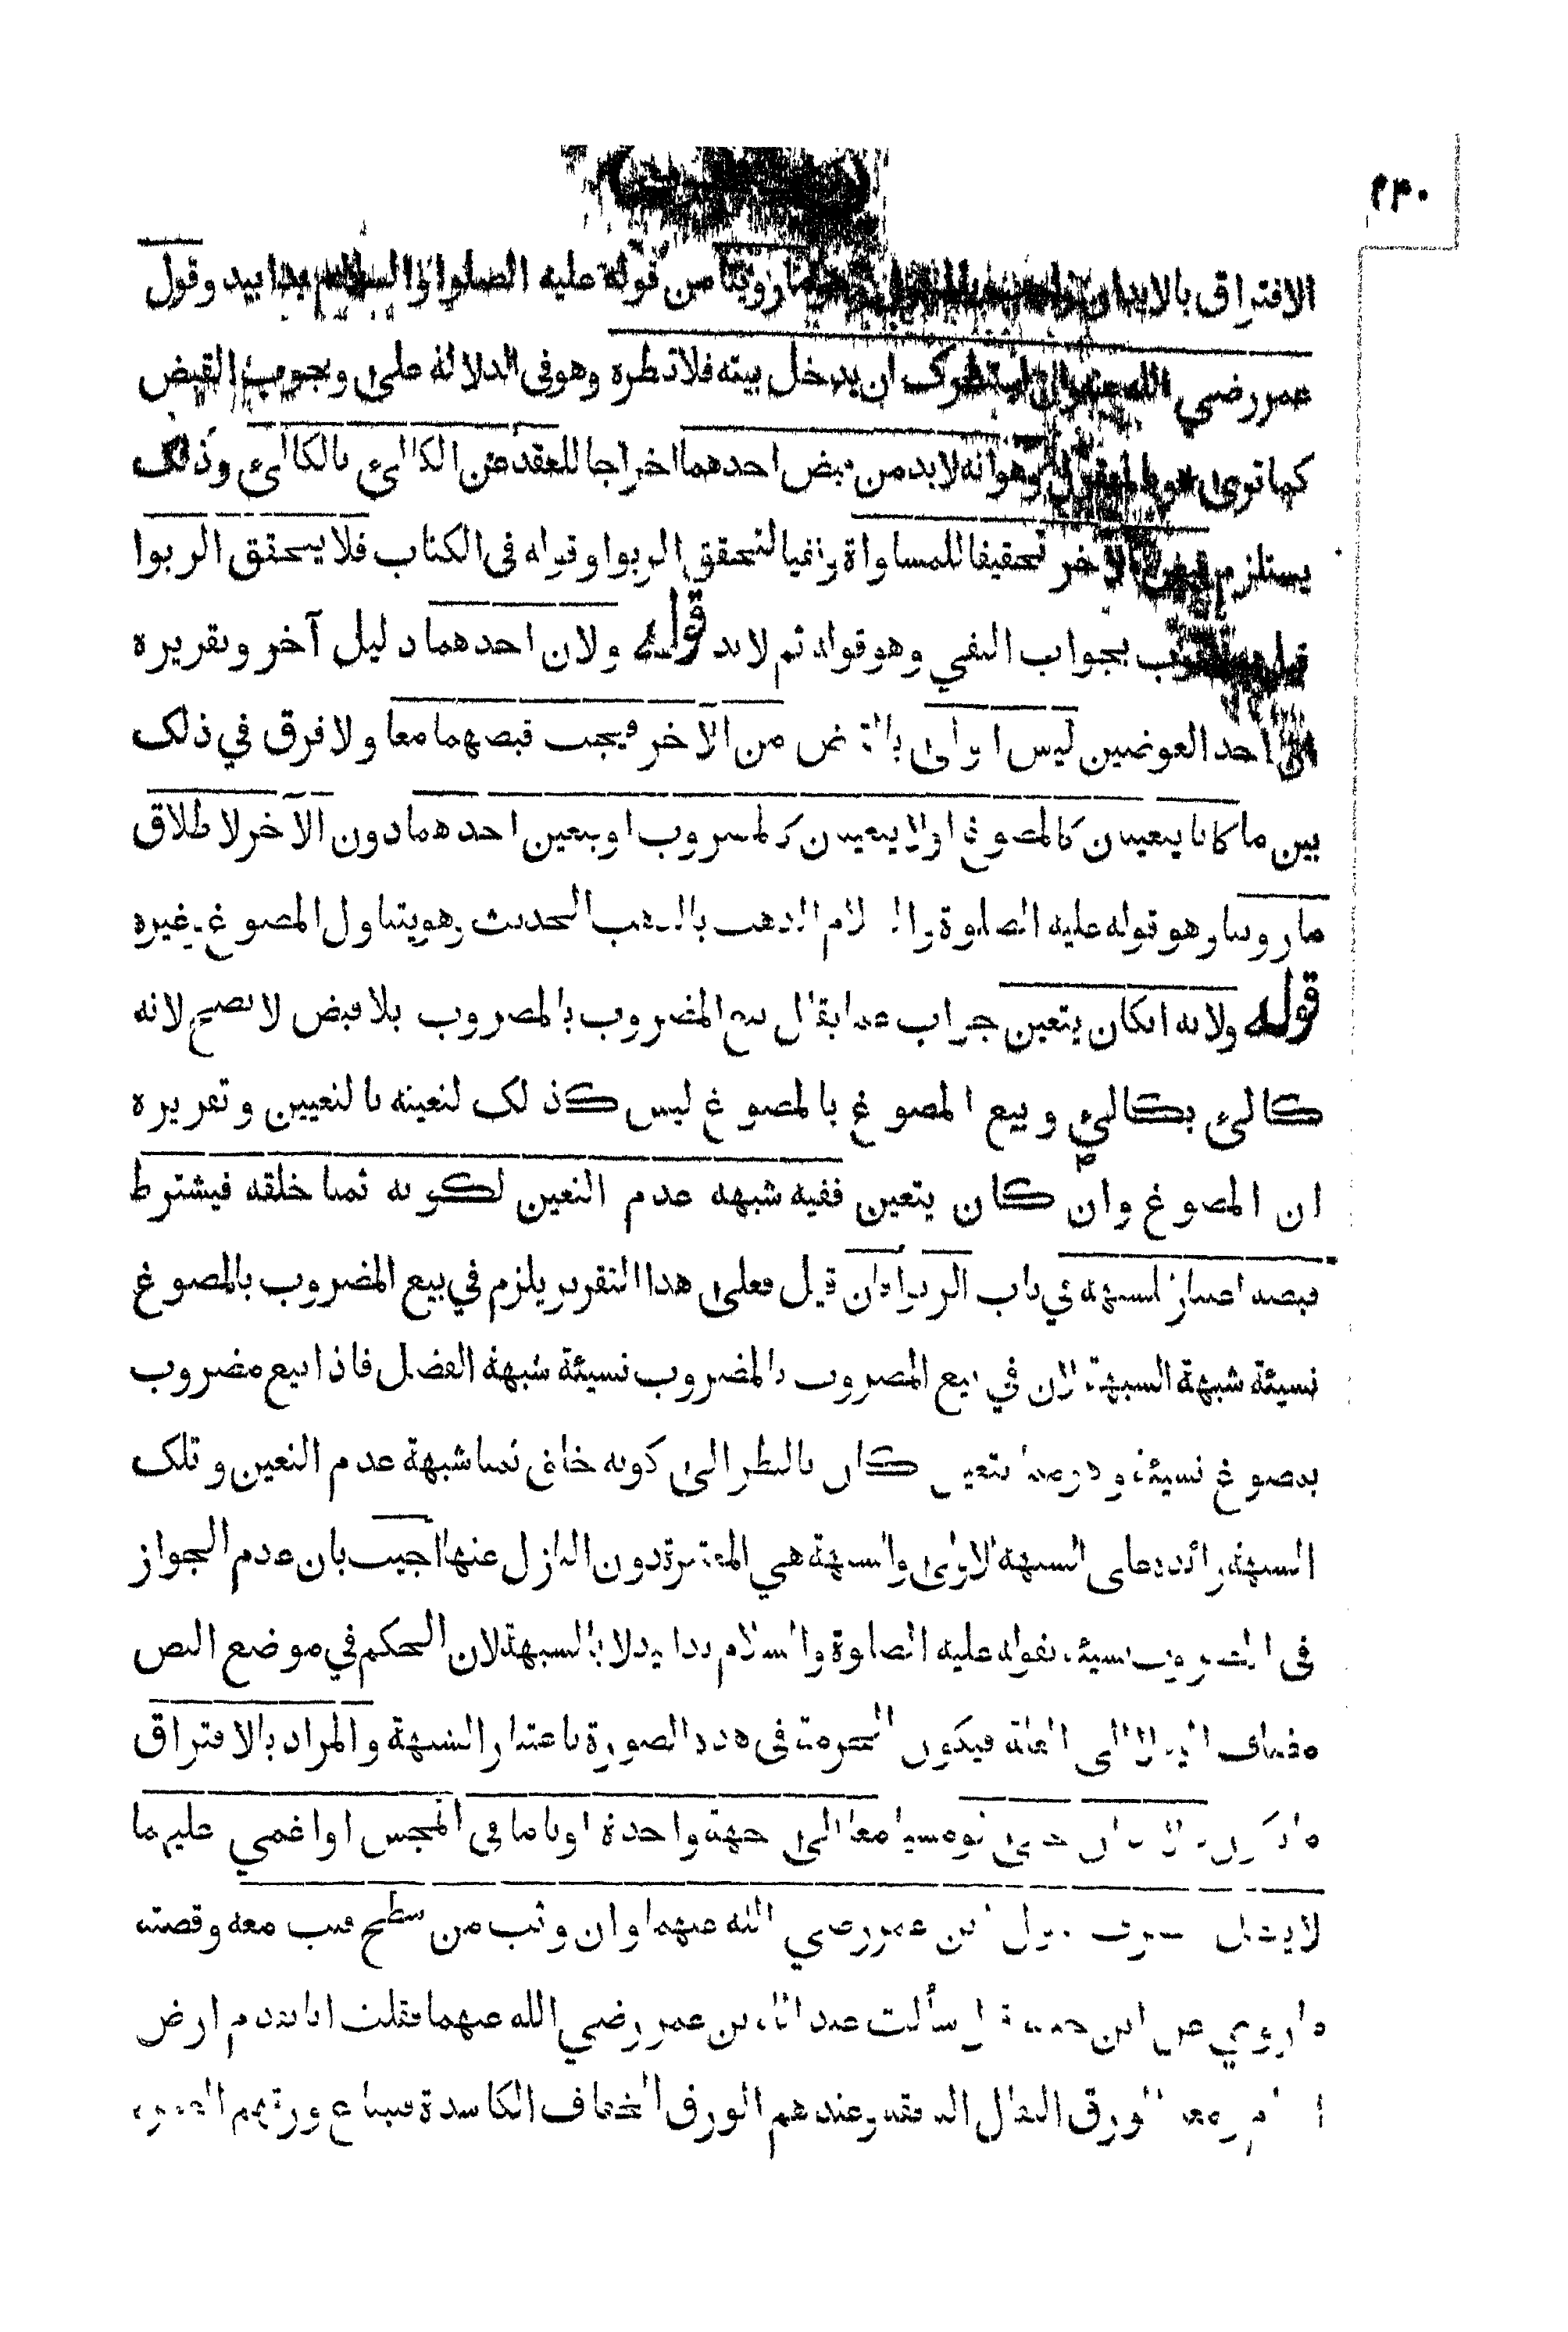 ٤٣٠
الافتراق بالابدان روينا من قوله عليه الصلواة والسلام يدا بيد وقول
عمر رضي الله عنه وان استنظرك ان يدخل بيته فلا تنظره وهو في الدلالة على وجوب القبض
كما ترى هو بالمعقول وهو انه لابد من قبض احدهما اخراجا للعقد عن الكالئ بالكالئ وذلك
يستلزم قبض الآخر تحقيقا للمساواة ونفيا لتحقق الربوا وقوله في الكتاب فلا يتحقق الربوا
بجواب النفي وهو قوله ثم لابد قوله ولان احدهما دليل آخر وتقريره
ان احد العوضين ليس اولى بالقبض من الآخر فيجب قبضهما معا ولا فرق في ذلك
بين ما كانا يتعينان كالمصوغ اولا يتعينان كالمضروب او يتعين احدهما دون الآخر لاطلاق
ما روينا وهو قوله عليه الصلوة والسلام الذهب بالذهب الحديث وهو يتناول المصوغ وغيره
قوله ولانه انكان يتعين جواب عما يقال بيع المضروب بالمضروب بلا قبض لا يصح لانه
كالئ بكالئ وبيع المصوغ بالمصوغ ليس كذلك لتعينه بالتعيين وتقريره
ان المصوغ وان كان يتعين ففيه شبهه عدم التعين لكونه ثمنا خلقه فيشترط
قبضه اعتبارا للشبهة في باب الربوا فان قيل فعلى هذا التقرير يلزم في بيع المضروب بالمصوغ
نسيئة شبهة الشبهة لان في بيع المضروب بالمضروب نسيئة شبهة الفضل فاذا بيع مضروب
بمصوغ نسيئة وهو مما يتعين كان بالنظر الى كونه خلق ثمنا شبهة عدم التعين وتلك
الشبهة زائدة على الشبهة الاولى والشبهة هي المعتبرة دون النازل عنها اجيب بان عدم الجواز
في المضروب نسيئة بقوله عليه الصلوة والسلام يدا بيد لا بالشبهة لان الحكم في موضع النص
مضاف اليه لا الى العلة فيكون الحرمة في هذه الصورة باعتبار الشبهة والمراد بالافتراق
ما يكون بالابدان حتى لو مشيا معا الى جهة واحدة او ناما في المجلس او اغمي عليهما
لا يبطل الصرف لقول ابن عمر رضي الله عنهما وان وثب من سطح فثب معه وقصته
ما روي عن ابي جبلة قال سألت عبد الله بن عمر رضي الله عنهما فقلت انا نقدم ارض
الشام ومعنا الورق الثقال النافقة وعندهم الورق الخفاف الكاسدة فنبتاع ورقهم العشرة